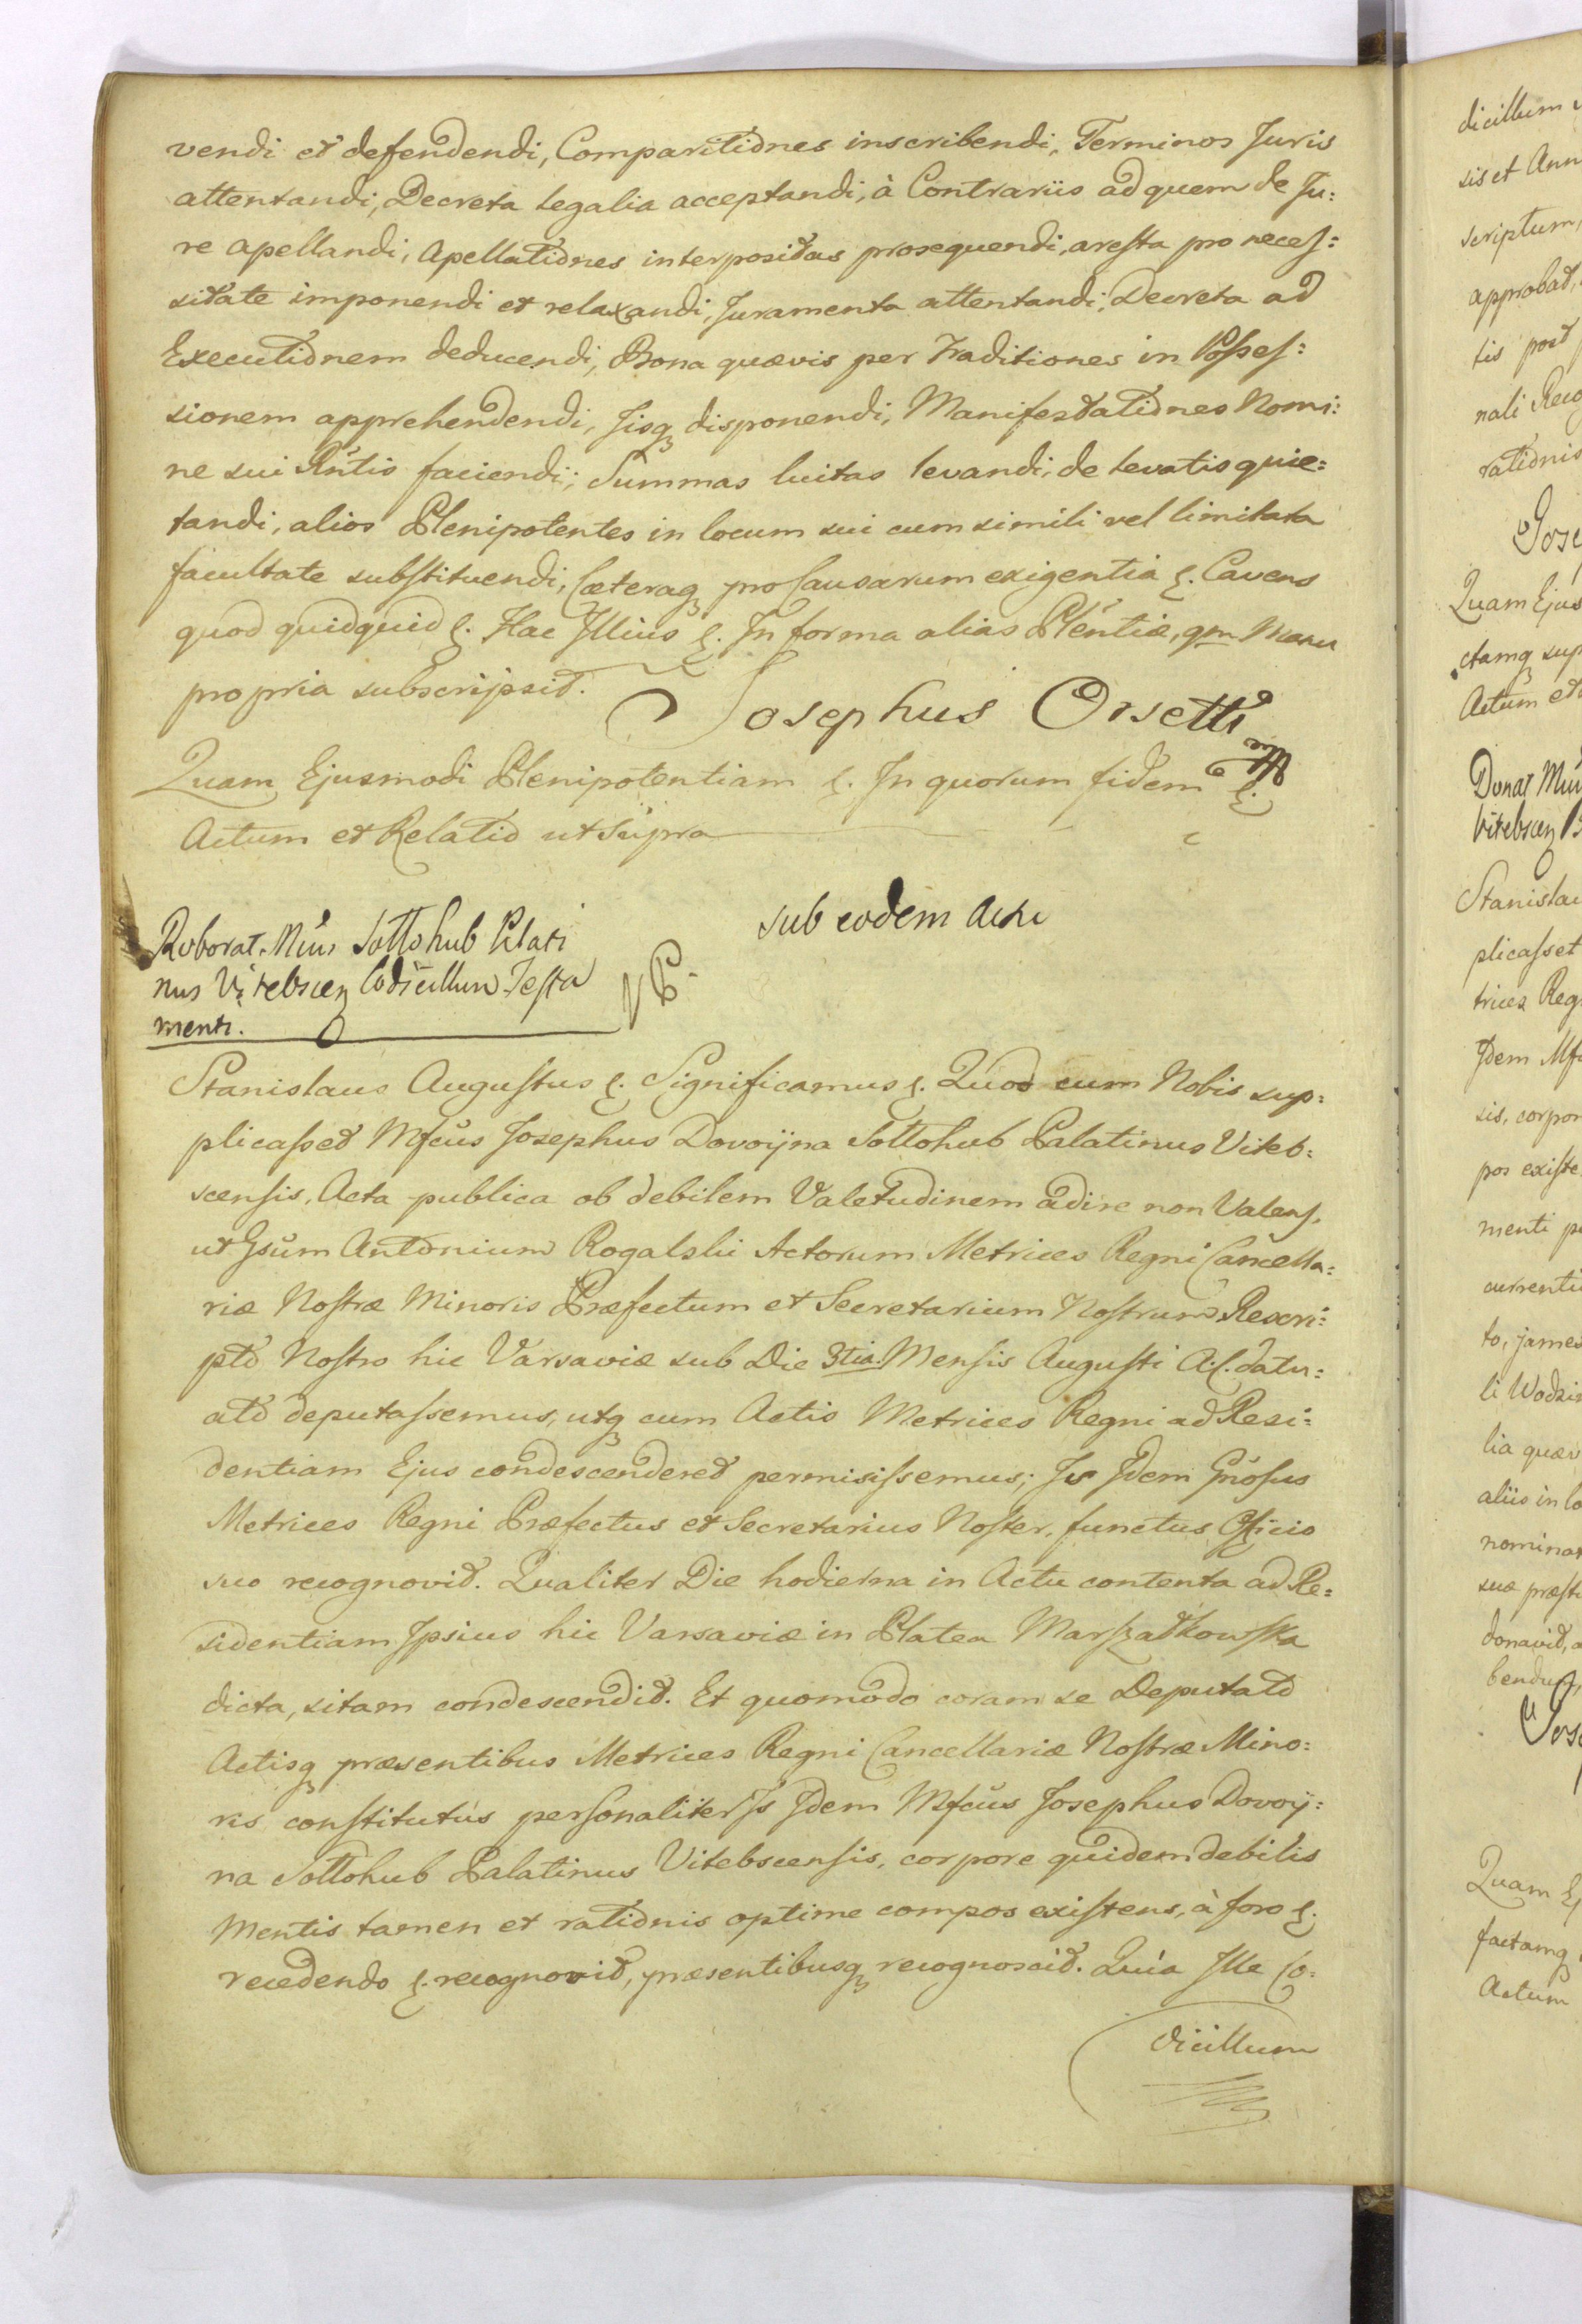 vendi et defendendi, Comparitiones inscribendi, Terminos Juris
attentandi, Decreta legalia acceptandi, à Contrariis ad quem de Ju:
re apellandi, Apellationes interpositas prosequendi, aresta pro neces:
sitate imponendi et relaxandi, Juramenta attentandi, Decreta ad
Executionem deducendi, Bona quævis per Traditiones in Posses:
sionem apprehendendi, Jisq disponendi, Manifestationes Nomi:
ne sui Rntis faciendi; Summas luitas levandi, de levatis quie:
tandi, alios Plenipotentes in locum sui cum simili vel limitata
facultate substituendi, Cæteraq pro Causarum exigentia &. Cavens
quod quidquid &. Hac Illius &. In forma alias Plentiæ, qm Manu
propria subscripsit.
Josephus Orsetti
mp
Quam Ejusmodi Plenipotentiam &. In quorum fidem &.
Actum et Relatio ut Supra
sub eodem Actu
Roborat. Mcus Sottohub Plati
nus Vitebscen Codicillum Testa
menti.
Stanislaus Augustus &. Significamus &. Quod cum Nobis sup:
plicasset Mfcus Josephus Dovoyna Sottohub Palatinus Viteb:
scensis, Acta publica ob debilem Valetudinem adire non Valens,
ut Gsum Antonium Rogalski Actorum Metrices Regni Cancella:
riæ Nostræ Minoris Præfectum et Secretarium Nostrum Rescri:
pto Nostro hic Varsaviæ sub Die 3tia. Mensis Augusti A. C. datu:
ato deputassemus, utq cum Actis Metrices Regni ad Resi:
dentiam Ejus condescenderet permisissemus; Is Idem Gnosus
Metrices Regni Præfectus et Secretarius Noster, functus Officio
suo recognovit. Qualiter Die hodierna in Actu contenta ad Re:
sidentiam Ipsius hic Varsaviæ in Platea Marszałkowska
dicta, sitam condescendit. Et quomodo coram se Deputato
Actisq præsentibus Metrices Regni Cancellariæ Nostræ Mino:
ris constitutus personaliter Is Idem Mfcus Josephus Dovoy:
na Sottohub Palatinus Vitebscensis, corpore quidem debilis
Mentis tamen et rationis optime compos existens, à foro &.
recedendo &. recognovit, præsentibusq recognoscit. Quia Ille Co:
dicillum
dicillum
sis et Ann
scriptum,
approbat,
tis post
nali Reco
rationis
Jose
Quam Ejus
ctamq sup
Actum et
Donat
Vitebscen
Stanislau
plicasset
trices Reg
Idem Mf
sis, corpor
pos existe
menti pe
currenti
to, james
li Wodzi
lia quæv
aliis in lo
nominat
suæ præst
donavit, a
bendum,
Jos
Quam Ej
factamq
Actum